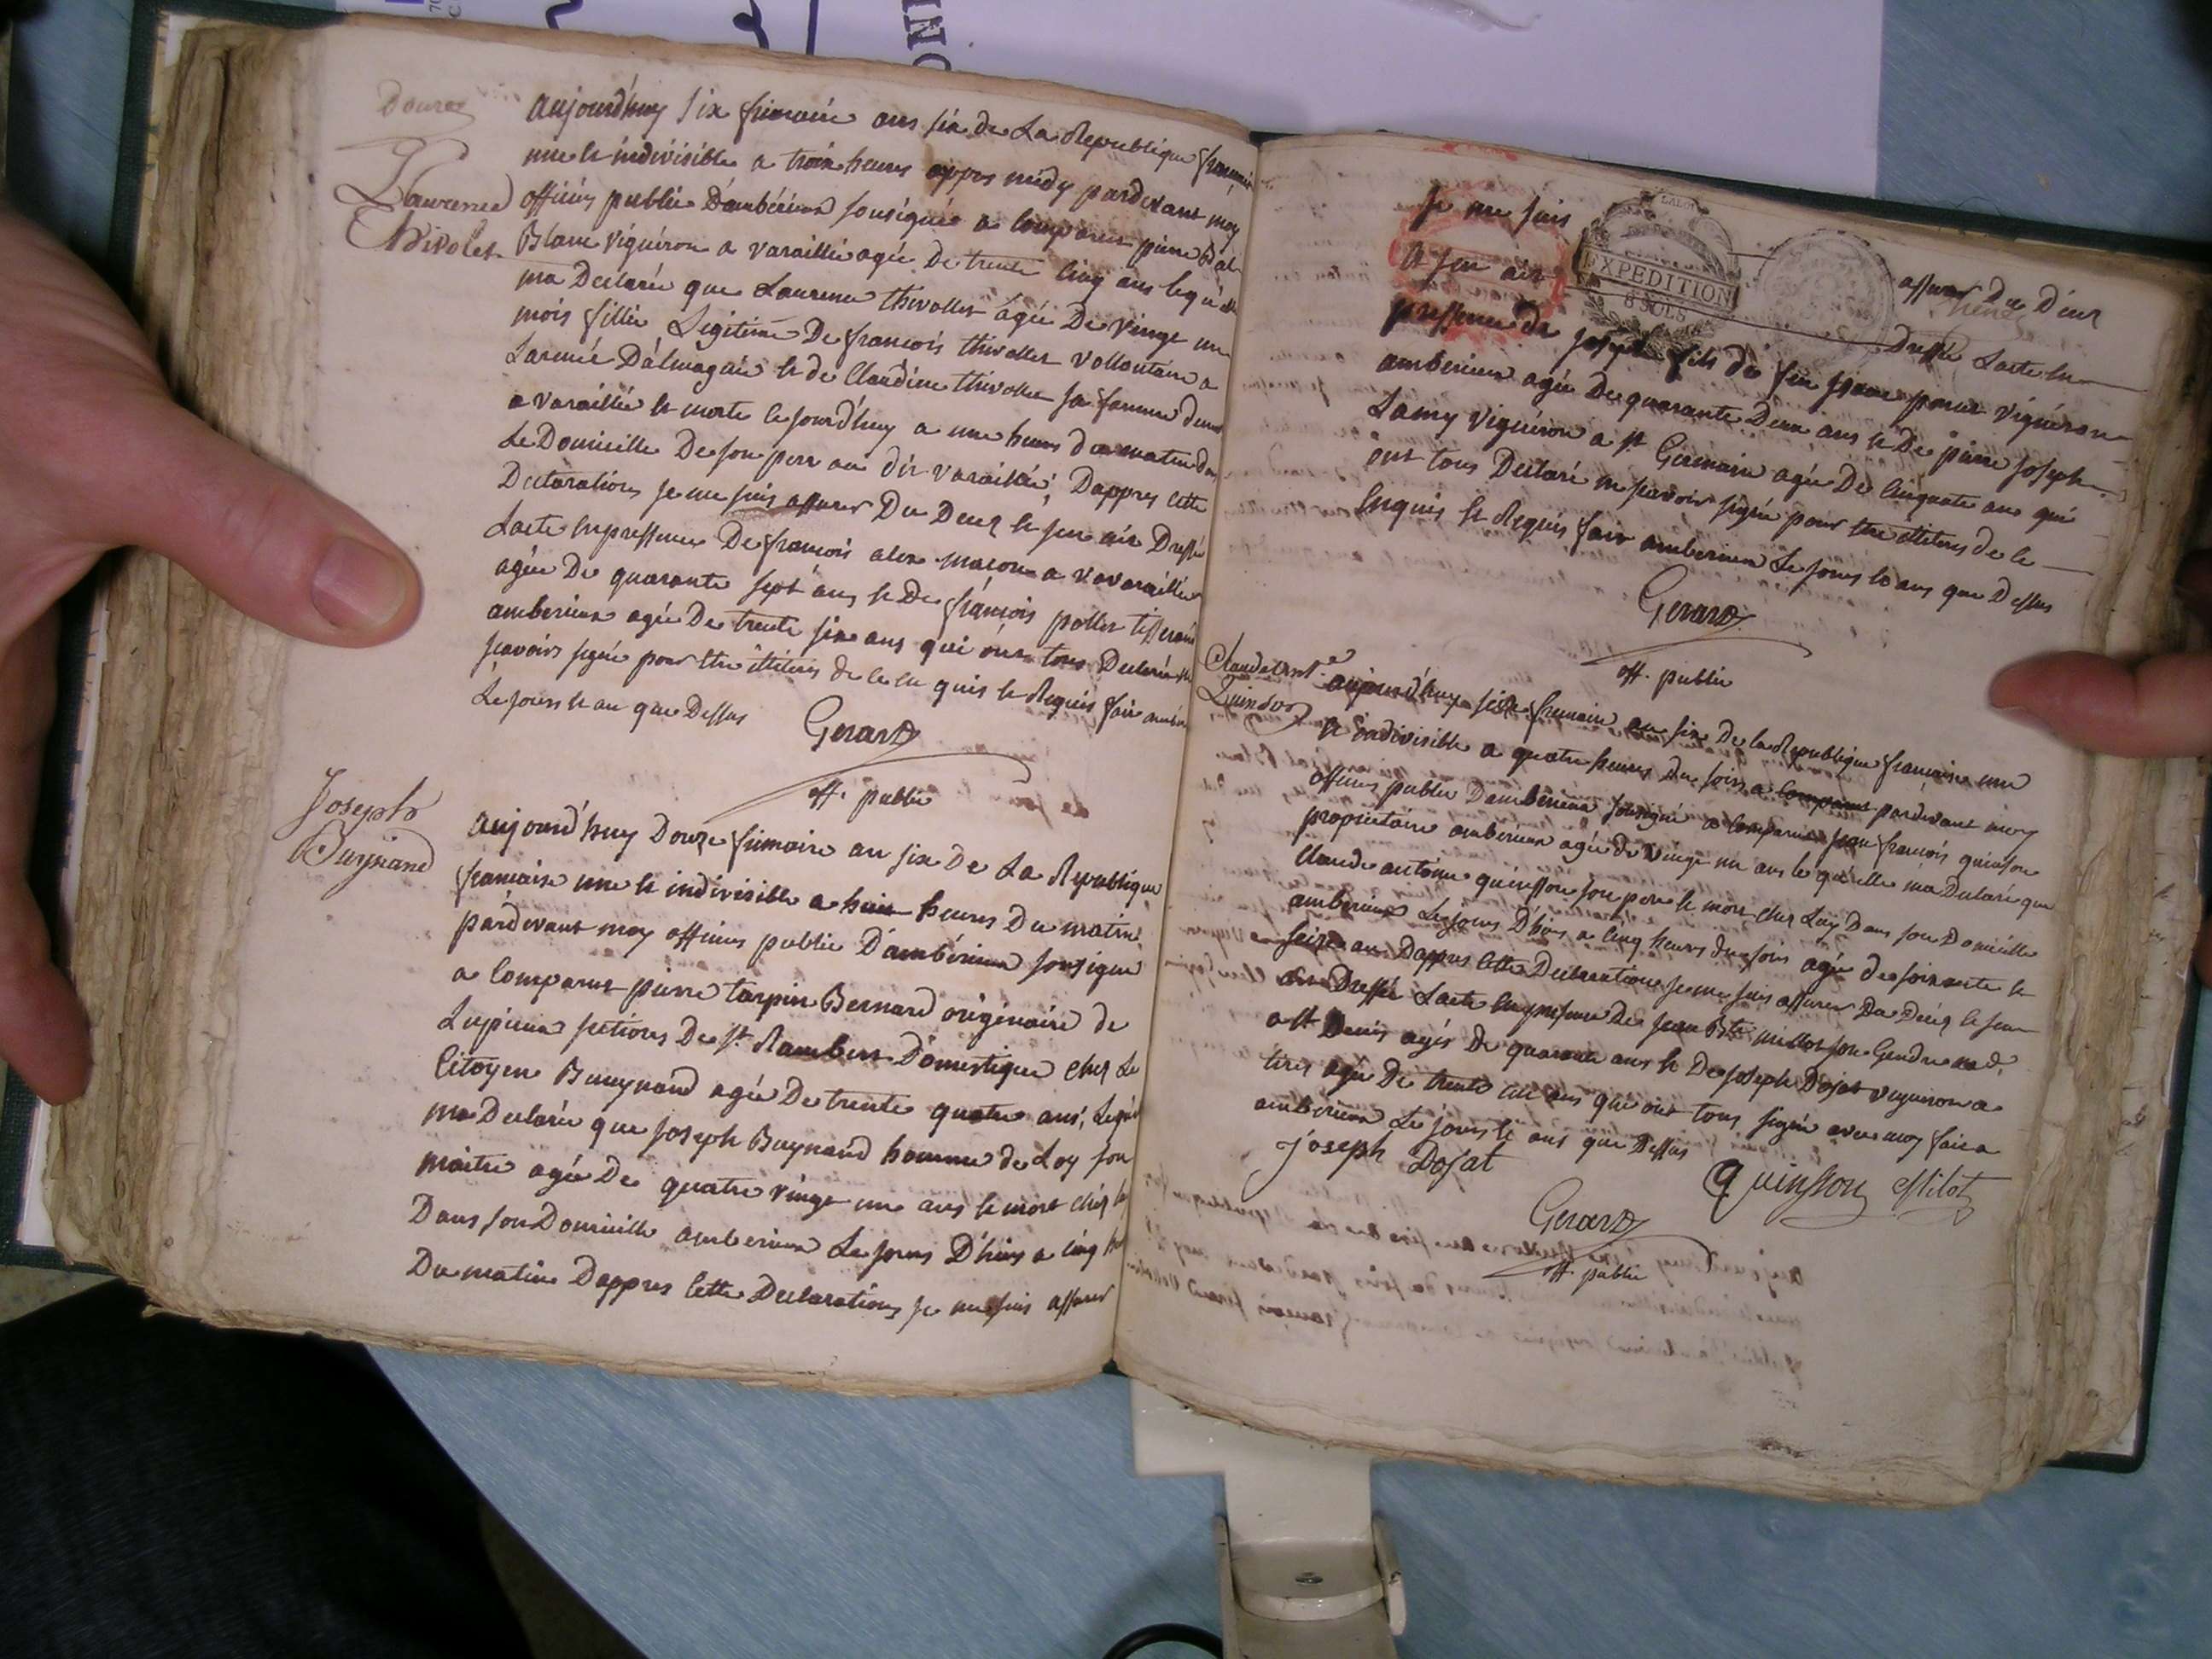 Dourez
Laurence
Thivolet
aujourd'huy six frimaire ans six de La Republique francaise
une et indivisible a trois heures appres midy pardevant moy
officiers publie D'ambérieux sousigné a comparus pierre Bal
Blanc vigneron a varaillie agée De trente cinq ans lequel
ma Declarée que Laurence thivollet agée De vingt un
mois fillie Legitime De francois thivollet vollontaire a
Larmée D'almagnie et de Claudine thivollet sa famme deme
a varaillie et morte cejourd'huy a une heures du matin da
Le Domicille De son perr au dit varaillie; Dappres cette
Declarations je me suis assurer Du Decez et jen ait Dressé
Lacte Enpressence De francois alex macon a varaillie
agée De quarante sept ans et De francois pollet tisseran
amberieux agée De trente six ans qui ons tous Declarée ne
scavoirs signé pour être ititeres de ce en quis et Requis fait ambe
Le jours et an que Dessus
Gerard
off. public
Joseph
Buynand
aujourd'huy Douze frimaire an six De La Republique
francaise une et indivisible a huit heures Du matin
pardevant moy officiers public D'ambérieux sousigné
a comparus pierre tarpin Bernard originaire de
Lupieux setions De St Rambert Domestique chez Le
Citoyen Buynand agée De trente quatre ans, Lequel
ma Declarée que Joseph Buynand homme de Loy son
maitre agée De quatre vingt une ans et mort chez lui
Dans son Domicille amberieux Le jours D'hiers a cinq h
Du matin Dappres cette Declarations je me suis assurer
Je me suis
assurer Du Decez
et jen ait
Dressé Lacte En
EXPEDITION
8 SOLS
pressence de joseph fils de feu
vigneron
amberieux agée De quarante Deux ans et De pierre joseph
Lamy vigneron a St Germain agée De cinquante ans qui
ont tous Declaré ne scavoir signé pour être ititeres de ce
Enquis et Requis fait amberieux Le jours et ans que Dessus
Gerard
off. public
Claude Ant.e
Quinson
aujourd'huy six frimaire an six De la Republique francaise une
et indivisible a quatre heures Du soirs a comparus pardevant moy
officiers public D'amberieux sousigné a comparus jean francois quinson
propriettaire amberieux agée de vingt un ans le quelle ma Declaré que
claude antoine quinsson son pere et mort chez Luy Dans son Domicille
amberieux Le jours D'hiers a cinq heures du soirs agée de soixante et
seize ans Dappres cette Declarations je me suis assurer Du Decez et jen
ait Dressé Lacte En presence De jean Bte millot son Gendre md
a St Denis agée De quarante ans et De joseph Dojat vigneron a
tirez agée De trente ans que ont tous signé avec moy fait a
amberieux Le jours et ans que Dessus
joseph Dojat
quinsson
Milot
Gerard
off. public